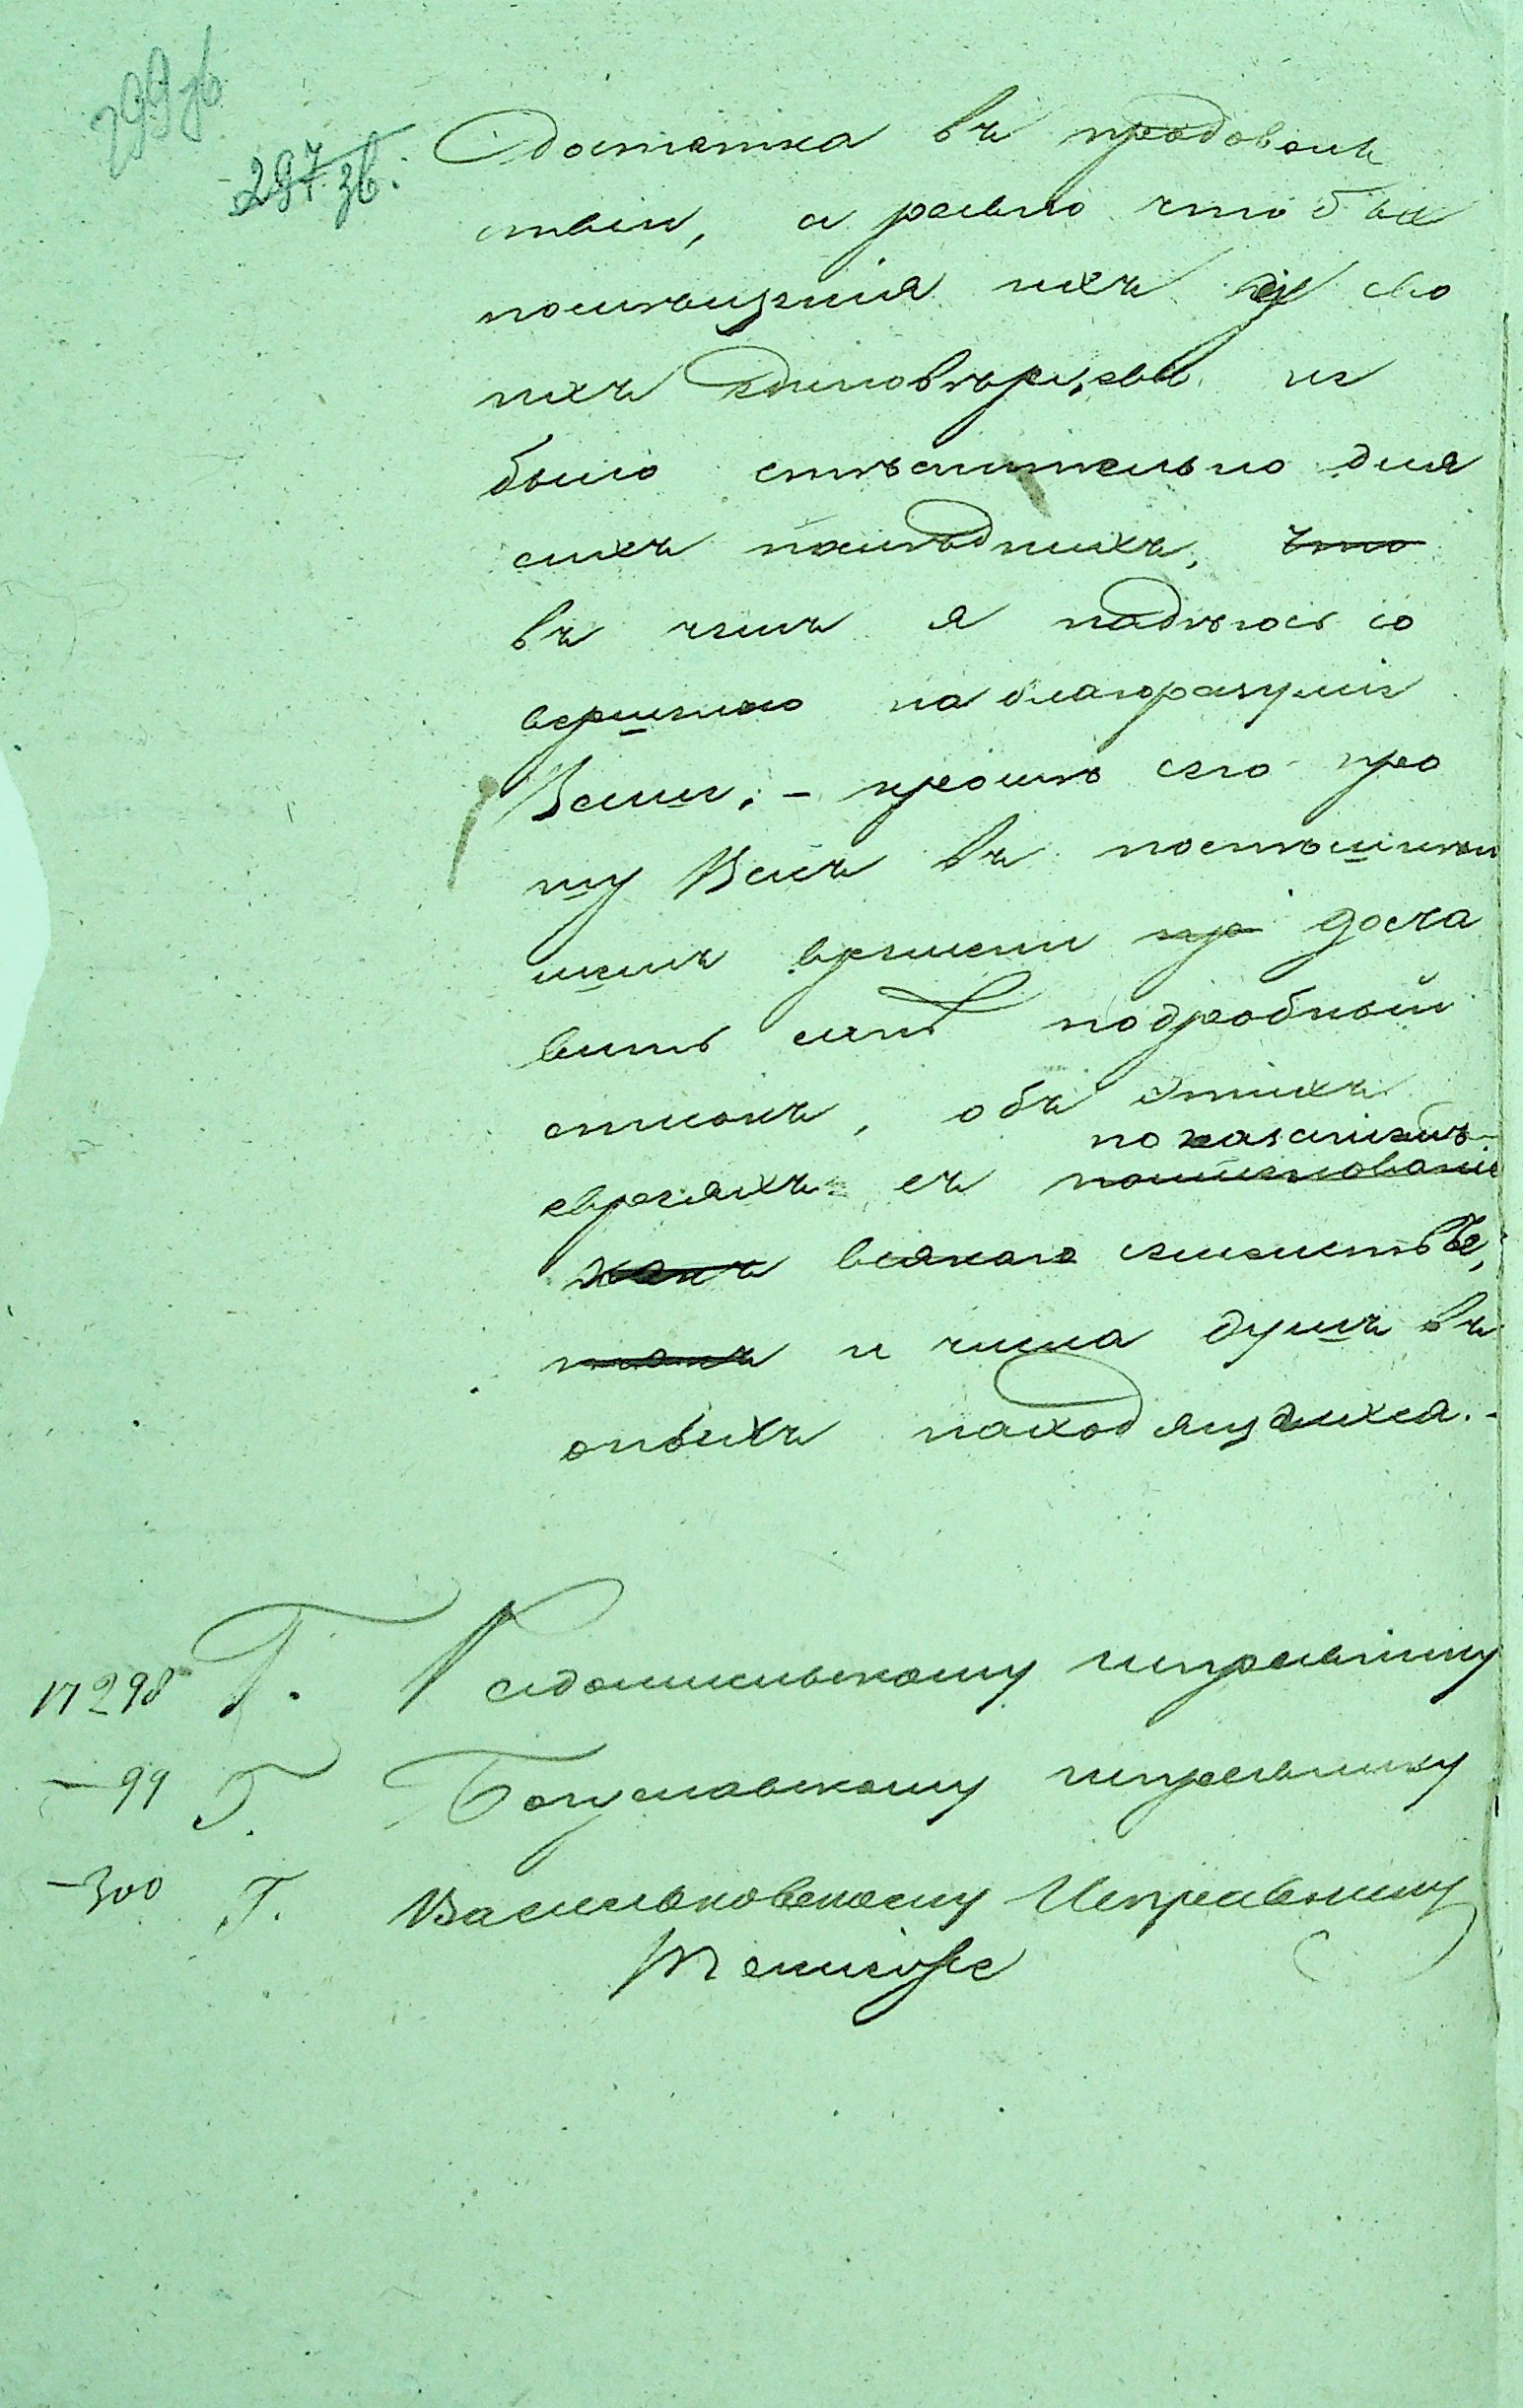 299 зв
297 зв.
достатка въ продоволь
ствіи, а равно чтобы
помѣщенія ихъ у сво
ихъ единовѣрцевъ не
было стѣснительно для
сихъ послѣднихъ, что
въ чемъ я надѣюсь со
вершенно на благоразуміе
Ваше; – кромѣ сего про
шу Васъ въ поспѣшнѣй
шемъ времени пр доста
вить мнѣ подробный
списокъ, объ этихъ
показаніемъ
евреяхъ съ поименованіе
какъ всякаго семейства,
такъ и числа душъ въ
оныхъ находящихся. –
17298 Г. Радомысльскому исправнику
– 99 Г. Богуславскому исправнику
– 300 Г. Васильковскому Исправнику